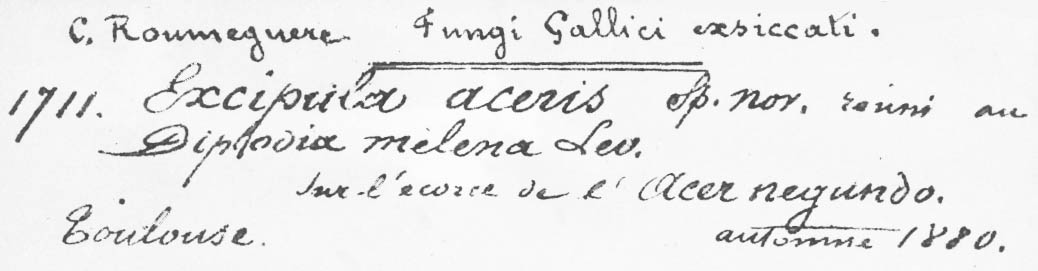 C. Roumeguere. Fungi Gallici exsiccati.
1711. Excipula aceris Sp. nov. réuni au
Diplodia melena Lev.
sur l'écorce de l'Acer negundo.
Toulouse. automne 1880.